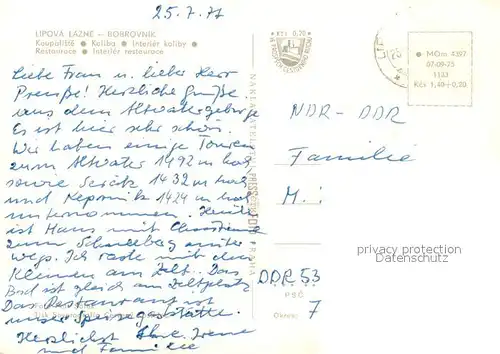 25.7.77
LIPOVÁ LÁZNĚ — BOBROVNÍK
Koupaliště • Koliba • Interiér koliby •
Restaurace • Interiér restaurace
Liebe Frau u. lieber Herr
Preuße! Herzliche Grüße
aus dem Altvatergebirge
Es ist hier sehr schön.
Wir haben einige Touren
zum Altvater 1492 m hoch
sowie Serák 1432 m hoch
und Kepernik 1424 m hoch
unternommen. Heute
ist Hans mit Christiane
zum Schneeberg unter
wegs. Ich raste mit dem
Kleinen am Zelt. Das
Bad ist gleich am Zeltplatz
Das Restaurant ist
unser Speisegaststätte.
Herzlichst Ihre Irene
und Familie
Kčs 0,20
• MOm 4397
07-09-75
1183
Kčs 1,40+0,20
NDR - DDR
Familie
M
privacy protection
DDR 53
PSČ
Okres: 7
PRAHA